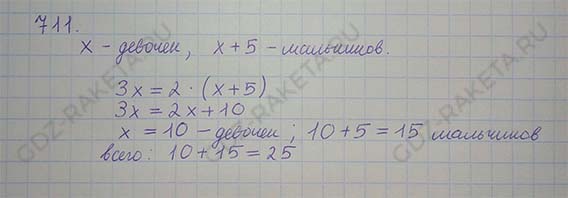 711.
x - девочек, x + 5 - мальчиков.
3x = 2 · (x + 5)
3x = 2x + 10
x = 10 - девочек; 10 + 5 = 15 мальчиков
всего: 10 + 15 = 25
GDZ-RAKETA.RU
GDZ-RAKETA.RU
GDZ-RAKETA.RU